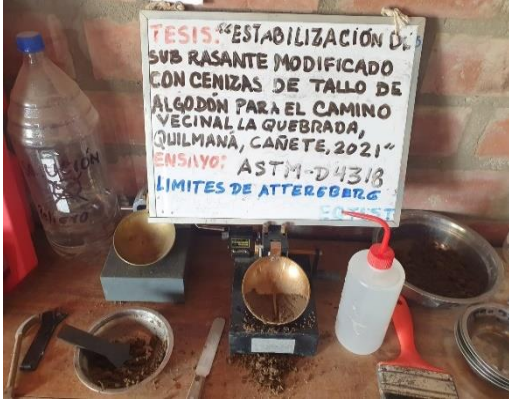 TESIS: "ESTABILIZACIÓN DE
SUB RASANTE MODIFICADO
CON CENIZAS DE TALLO DE
ALGODÓN PARA EL CAMINO
VECINAL LA QUEBRADA,
QUILMANÁ, CAÑETE, 2021"
ENSAYO: ASTM-D4318
LIMITES DE ATTEREBERG